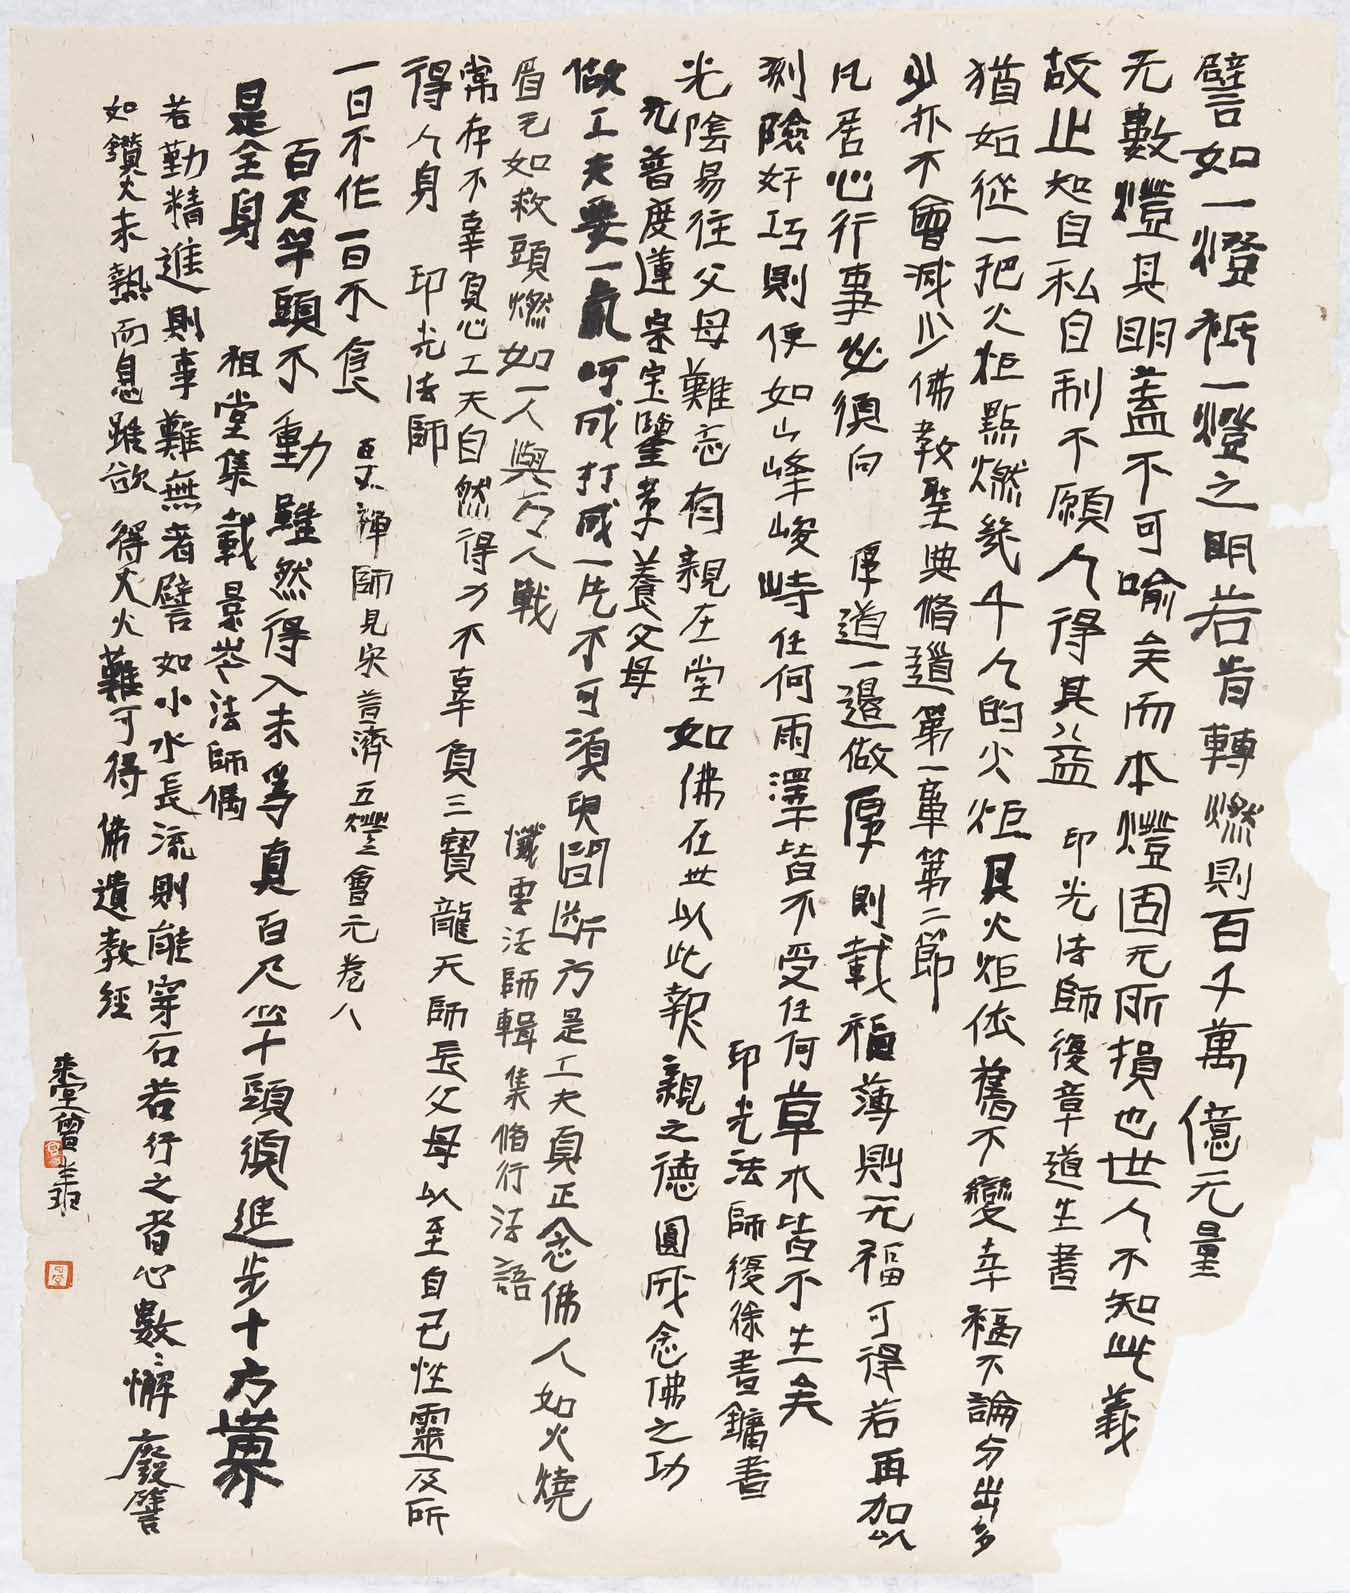 譬如一燈祇一燈之明若肯轉燃則百千萬億无量
无數燈其明蓋不可喻矣而本燈固无所損也世人不知此義
故止知自私自利不願人得其益 印光法師復章道生書
猶如從一把火炬點燃幾千人的火炬其火炬依舊不變幸福不論分出多
少亦不會減少佛教聖典脩道第一章第二節
凡居心行事必須向厚道一邊做厚則載福薄則无福可得若再加以
刻險奸巧則便如山峰峻峙任何雨澤皆不受任何草木皆不生矣
印光法師復徐書鏞書
光陰易往父母難忘有親在堂如佛在世以此報親之德圓成念佛之功
元普度蓮宗宝鑒孝養父母
做工夫要一氣呵成打成一片不可須臾間斷方是工夫真正念佛人如火燒
眉毛如救頭燃如一人與万人戰 懺雲法師輯集脩行法語
常存不辜負心工夫自然得力不辜負三寶龍天師長父母以至自己性靈及所
得人身 印光法師
一日不作一日不食 百丈禅師見宋普濟五燈會元卷八
百尺竿頭不動雖然得入未爲真百尺竿頭須進步十方世界
是全身 祖堂集載景岑法師偈
若勤精進則事難無者譬如小水長流則能穿石若行之者心數數懈廢譬
如鑽火未熱而息雖欲得火火難可得佛遺教經